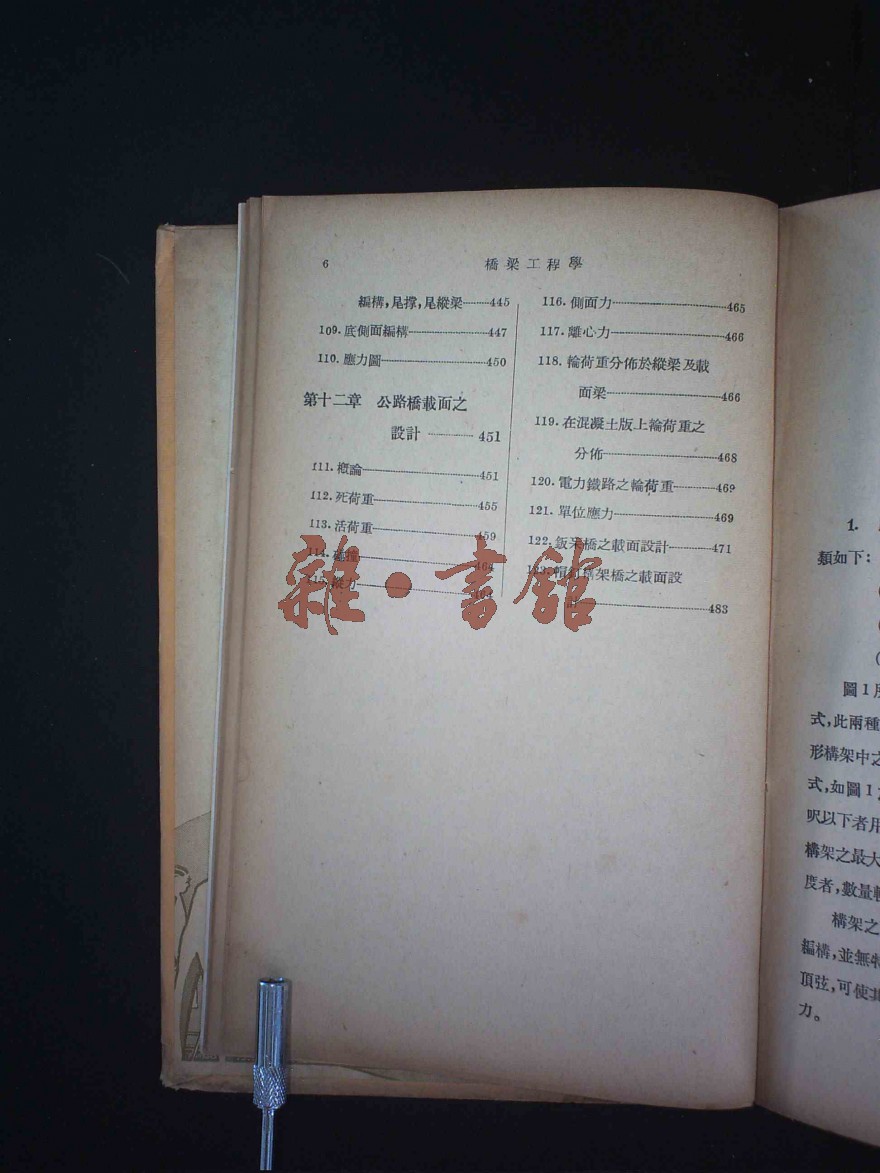 6
橋梁工程學
編構,尾撐,尾縱梁………445
109.底側面編構………447
110.應力圖………450
第十二章 公路橋載面之
設計………451
111.概論………451
112.死荷重………455
113.活荷重………459
114.
115.縱力
116.側面力………465
117.離心力………466
118.輪荷重分佈於縱梁及載
面梁………466
119.在混凝土版上輪荷重之
分佈………468
120.電力鐵路之輪荷重………469
121.單位應力………469
122.鈑梁橋之載面設計………471
構架橋之載面設
………483
雜·書館
1.
類如下:
圖1
式,此兩種
形構架中之
式,如圖1
呎以下者用
構架之最大
度者,數量
構架之
編構,並無特
頂弦,可使
力。